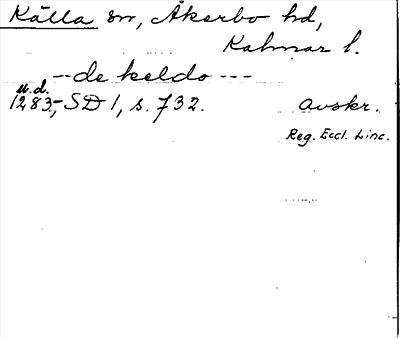 Källa sn, Åkerbo hd,
Kalmar l.
-- de keldo ---
u.d.
1283, SD 1, s. 732. avskr.
Reg. Eccl. Linc.